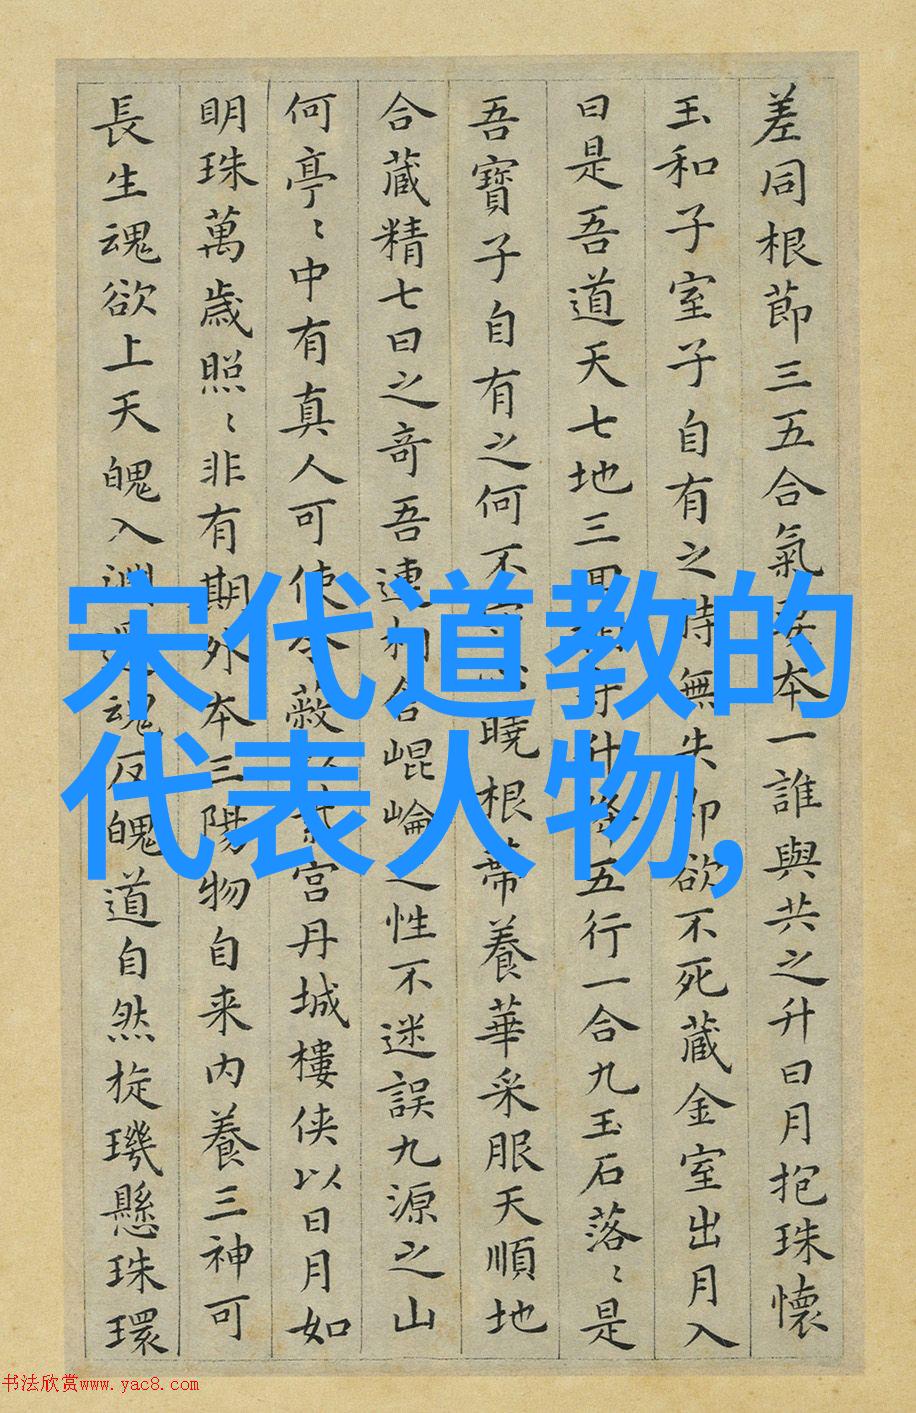 差同根節三五合氣要本一誰與共之升日月抱珠懷
玉和子室子自有之持無失即欲不死藏金室出月入
日是吾道天七地三回守升降五行一合九玉石落〻是
吾寶子自有之何不心曉根蒂養華采服天順地
合藏精七日之奇吾連相合崐崘之性不迷誤九源之山
何亭〻中有真人可使令蔽以宮丹城樓侠以日月如
明珠萬歲照〻非有期外本三陽物自来内養三神可
長生魂欲上天魄入淵魂反魄道自然旋璣懸珠環
宋代道教的
代表人物,
书法欣赏www.yac8.com